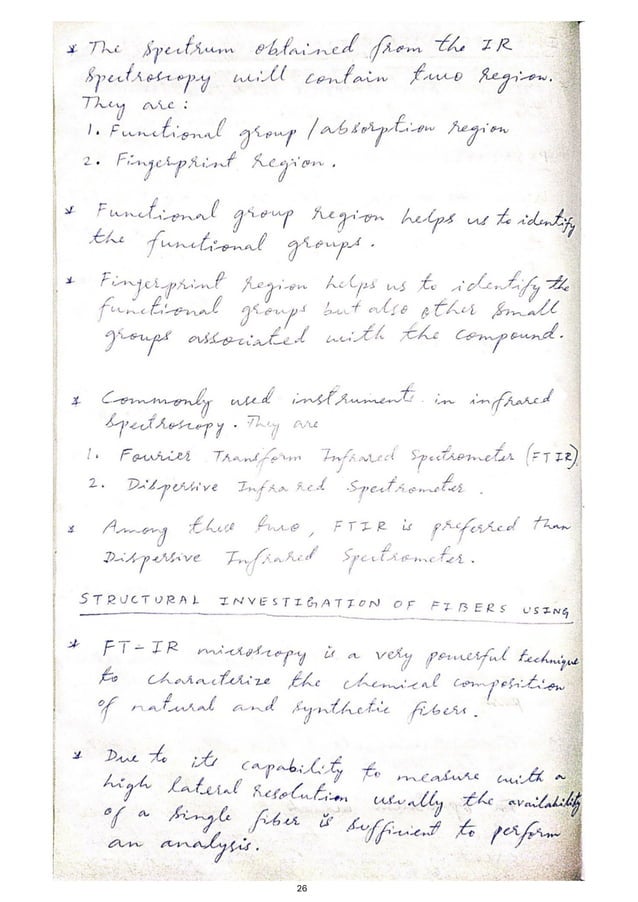 * The spectrum obtained from the IR
spectroscopy will contain two region.
They are :
1. Functional group / absorption region
2. Fingerprint region.
* Functional group region helps us to identify
the functional groups.
* Fingerprint region helps us to identify the
functional groups but also other small
groups associated with the compound.
* Commonly used instruments in infrared
spectroscopy. They are
1. Fourier Transform Infrared Spectrometer (FTIR)
2. Dispersive Infrared Spectrometer.
* Among these two, FTIR is preferred than
Dispersive Infrared Spectrometer.
STRUCTURAL INVESTIGATION OF FIBERS USING
* FT-IR microscopy is a very powerful technique
to characterize the chemical composition
of natural and synthetic fibers.
* Due to its capability to measure with a
high lateral resolution usually the availability
of a single fiber is sufficient to perform
an analysis.
26